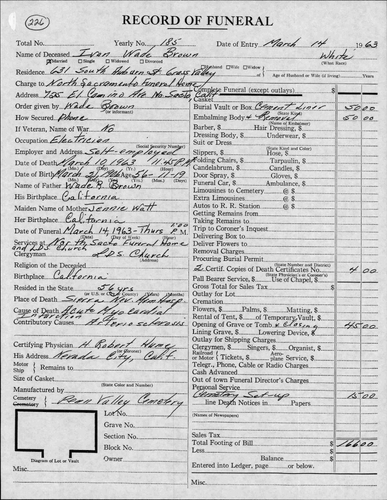 226
RECORD OF FUNERAL
Total No. Yearly No. 185 Date of Entry March 14 1963
Name of Deceased Ivan Wade Brown White
Married Single Widowed Divorced (What Race)
Residence 631 South Auburn St. Grass Valley
Charge to North Sacramento Funeral Home
Address 725 El Camino Ave No. Sacto, Calif
Order given by Wade Brown
How Secured Phone
If Veteran, Name of War No
Occupation Electrician
(Social Security Number)
Employer and Address Self-employed
Date of Death March 10, 1963 11:45 PM
Date of Birth March 21, 1906 56-11-19
Name of Father Wade R. Brown
His Birthplace California
Maiden Name of Mother Jennie Watt
Her Birthplace California
Date of Funeral March 14, 1963-Thurs 1:00 P.M.
Services at North Sacto Funeral Home
Clergyman L.D.S. Church
Religion of the Deceased
Birthplace California
Resided in the State 56 yrs
Place of Death Sierra Nev. Mem Hosp
Cause of Death Acute Myocardial
Infarction
Contributory Causes Arteriosclerosis
Certifying Physician H. Robert Hume
His Address Nevada City, Calif.
Motor
Ship Remains to
Size of Casket
(State Color and Number)
Manufactured by
Cemetery
Penn Valley Cemetery
Lot No.
Grave No.
Section No.
Block No.
Diagram of Lot or Vault Owner
Misc.
Complete Funeral (except outlays) $
Casket
Burial Vault or Box Cement Liner 50 00
(State Kind)
Embalming Body & Removal 50 00
(Name of Embalmer)
Barber, $ Hair Dressing, $
Dressing Body, $ Underwear, $
Suit or Dress
(State Kind and Color)
Slippers, $ Hose, $
Folding Chairs, $ Tarpaulin, $
Candelabrum, $ Candles, $
Door Spray, $ Gloves, $
Funeral Car, $ Ambulance, $
Limousines to Cemetery @ $
Extra Limousines @ $
Autos to R. R. Station @ $
Getting Remains from
Taking Remains to
Trip to Coroner's Inquest
Delivering Box to
Deliver Flowers to
Removal Charges
Procuring Burial Permit
(State Number and District)
2 Certif. Copies of Death Certificates No. 4 00
Pall Bearer Service, $ Use of Chapel, $
Gross Total for Sales Tax $
Outlay for Lot
Cremation
Flowers, $ Palms, $ Matting, $
Rental of Tent, $ of Temporary Vault, $
Opening of Grave or Tomb & Closing 45 00
Lining Grave, $ Lowering Device, $
Outlay for Shipping Charges
Clergymen, $ Singers, $ Organist, $
Railroad
or Motor Tickets, $ Aeroplane Service, $
Telgr., Phone, Cable or Radio Charges
Cash Advanced
Out of town Funeral Director's Charges
Personal Service
Cemetery Set-up 15 00
line Death Notices in Papers
(Names of Newspapers)
Sales Tax
Total Footing of Bill $ 166 00
Less
Balance $
Entered into Ledger, page or below.
Misc.